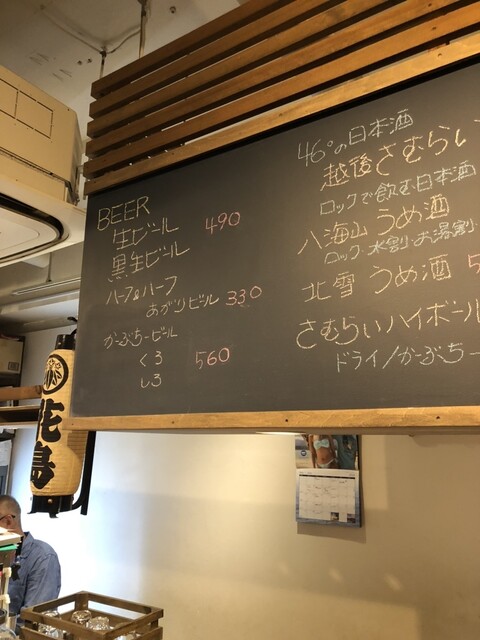 BEER
生ビール 490
黒生ビール
ハーフ&ハーフ
あがりビール 330
かーぶちービール
くろ 560
しろ
46°の日本酒
越後さむらい
ロックで飲む日本酒
八海山 うめ酒
ロック・水割・お湯割・
北雪 うめ酒
さむらいハイボール
ドライ/かーぶちー
花島